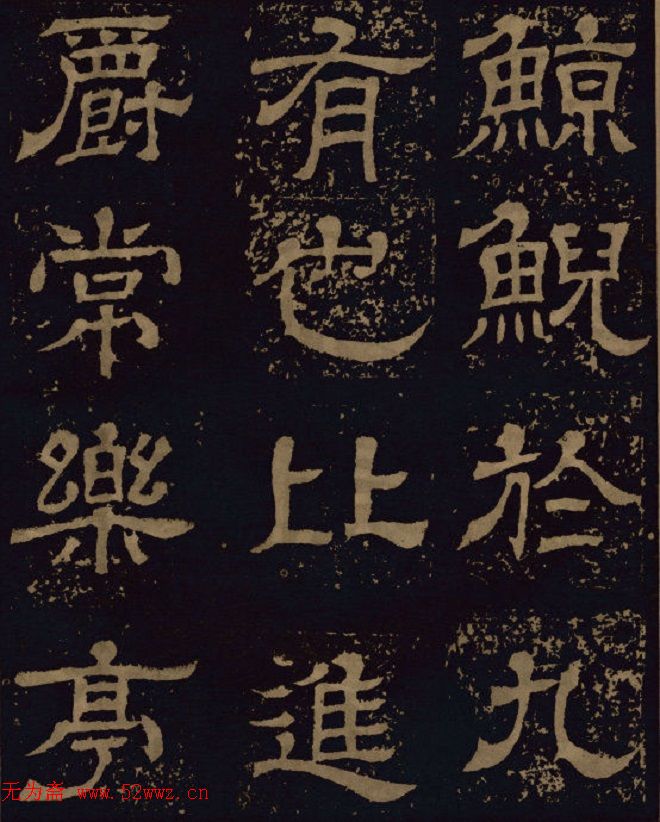 鯨鯢於九
有也比進
爵常樂亭
无为斋 www.52wwz.cn